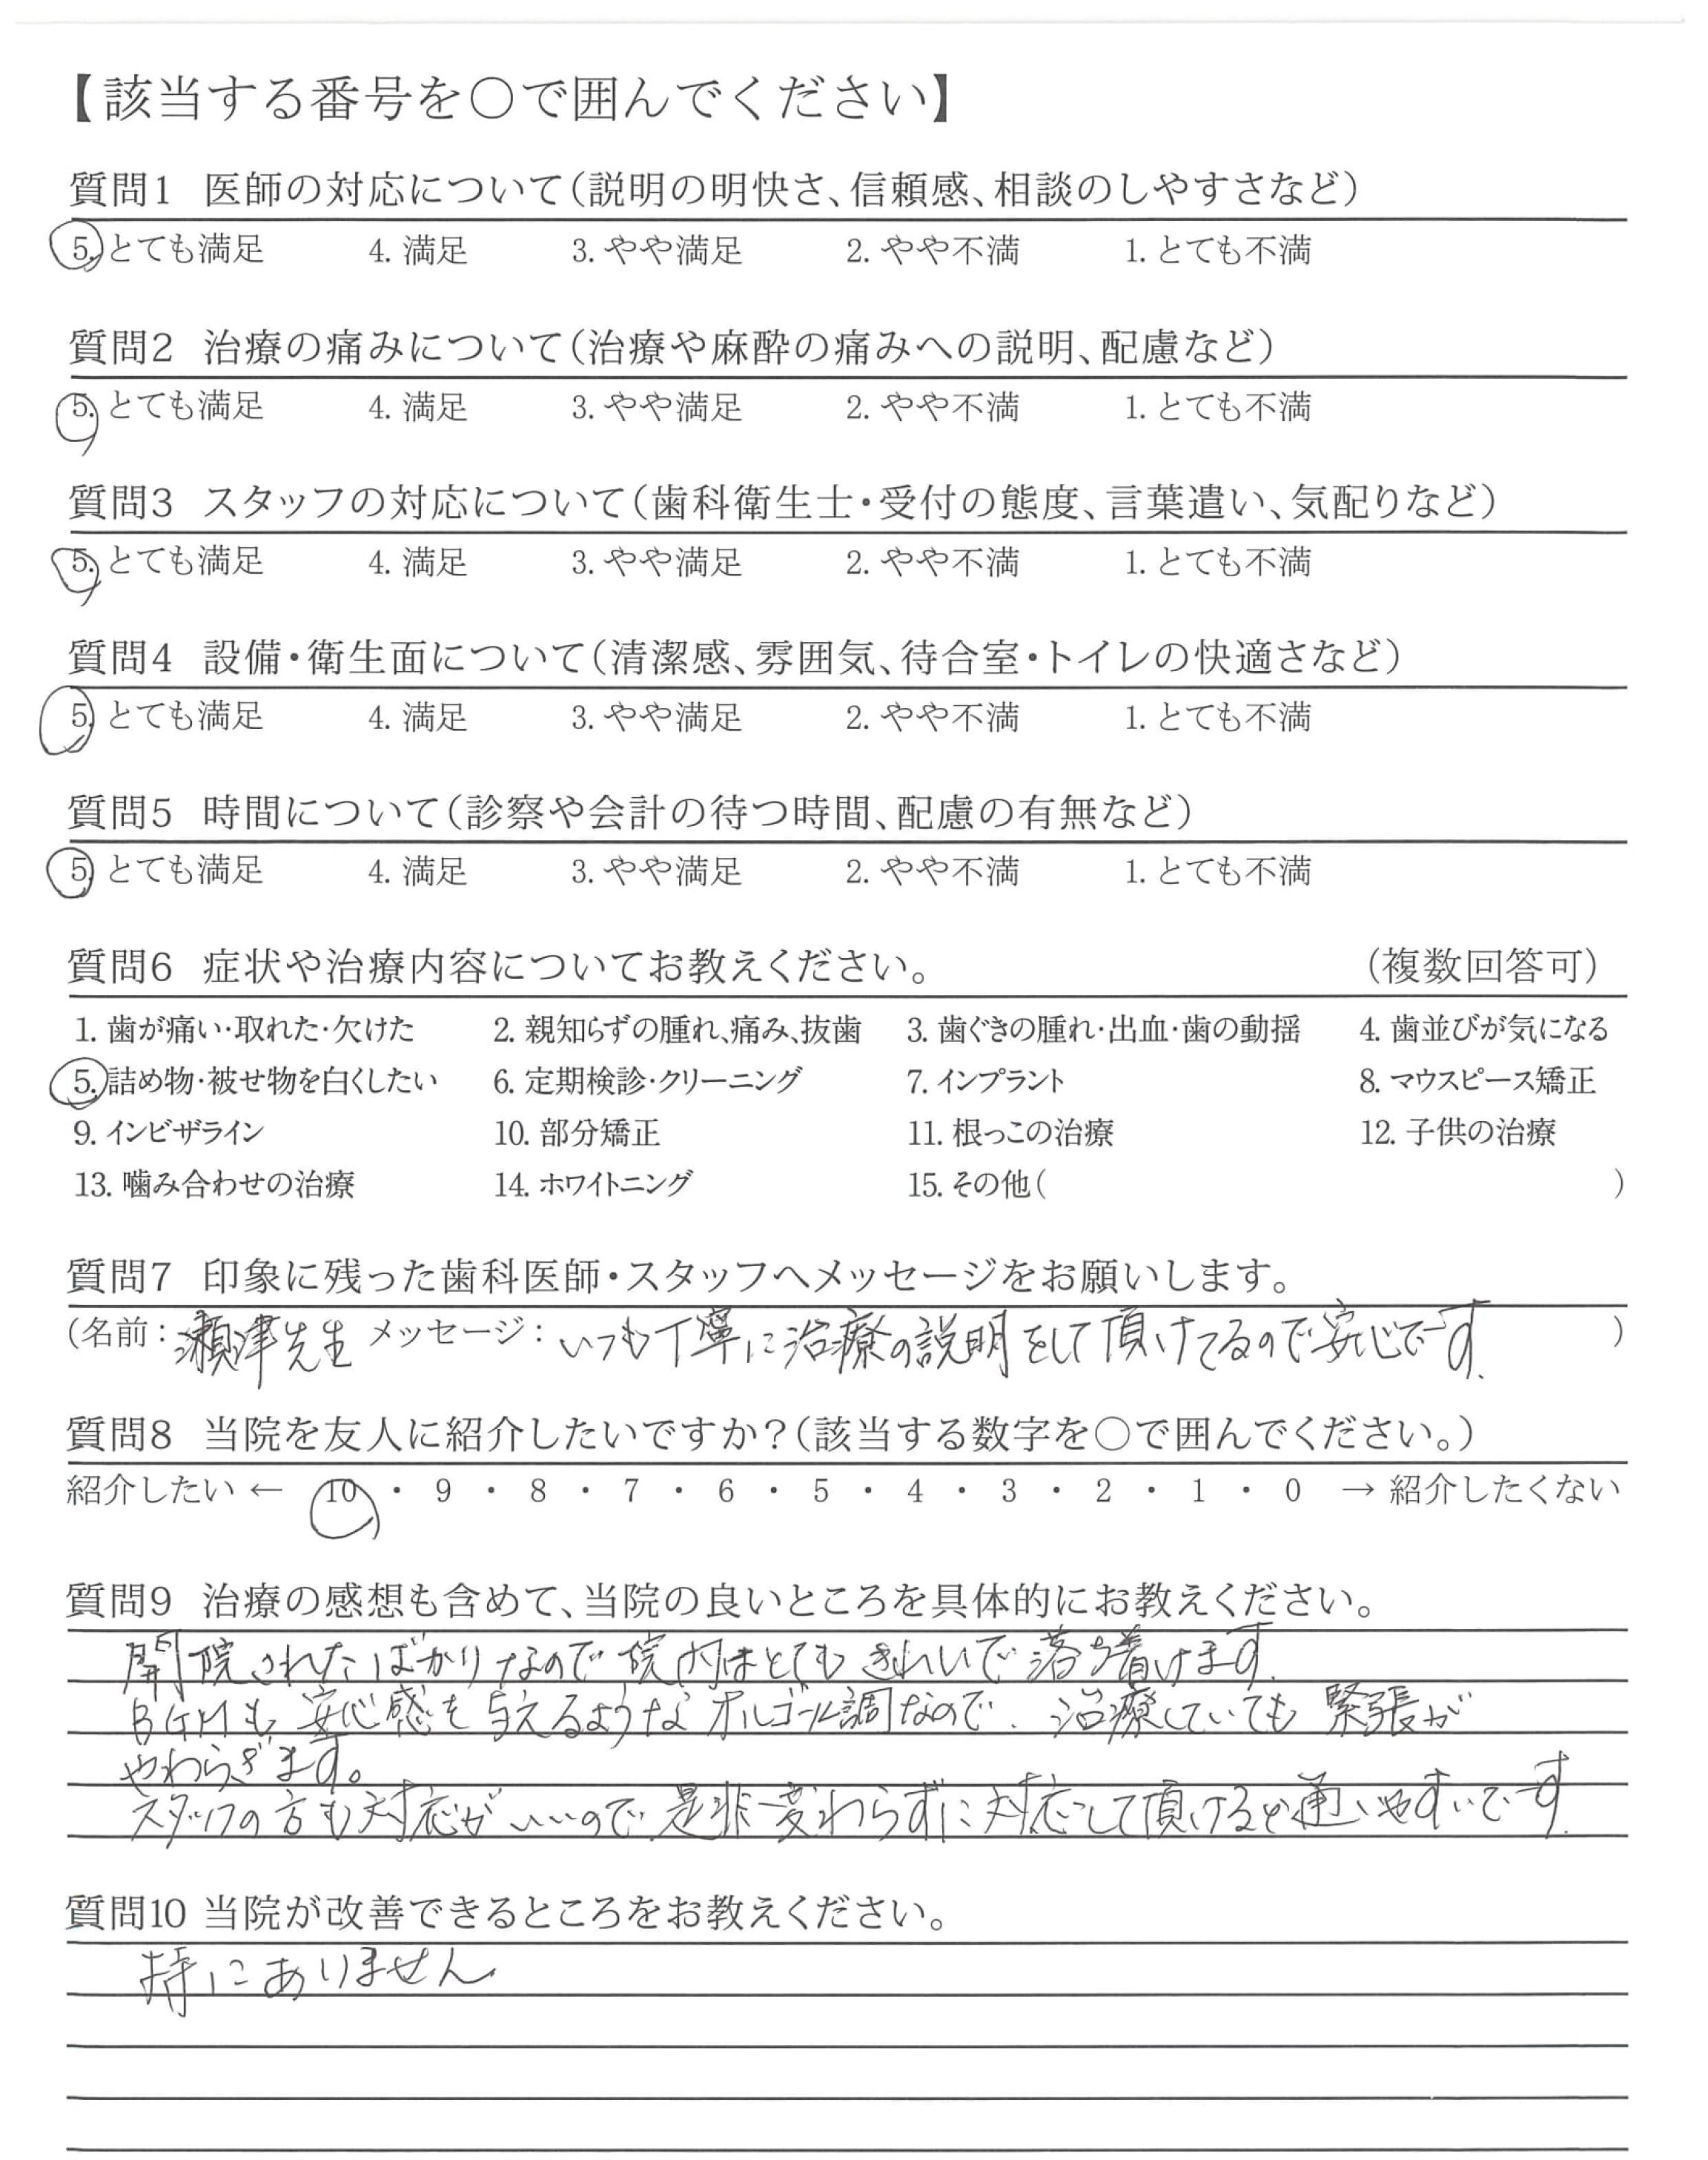 【該当する番号を〇で囲んでください】
質問1 医師の対応について(説明の明快さ、信頼感、相談のしやすさなど)
5. とても満足 4. 満足 3. やや満足 2. やや不満 1. とても不満
質問2 治療の痛みについて(治療や麻酔の痛みへの説明、配慮など)
5. とても満足 4. 満足 3. やや満足 2. やや不満 1. とても不満
質問3 スタッフの対応について(歯科衛生士・受付の態度、言葉遣い、気配りなど)
5. とても満足 4. 満足 3. やや満足 2. やや不満 1. とても不満
質問4 設備・衛生面について(清潔感、雰囲気、待合室・トイレの快適さなど)
5. とても満足 4. 満足 3. やや満足 2. やや不満 1. とても不満
質問5 時間について(診察や会計の待つ時間、配慮の有無など)
5. とても満足 4. 満足 3. やや満足 2. やや不満 1. とても不満
質問6 症状や治療内容についてお教えください。 (複数回答可)
1. 歯が痛い・取れた・欠けた 2. 親知らずの腫れ、痛み、抜歯 3. 歯ぐきの腫れ・出血・歯の動揺 4. 歯並びが気になる
5. 詰め物・被せ物を白くしたい 6. 定期検診・クリーニング 7. インプラント 8. マウスピース矯正
9. インビザライン 10. 部分矯正 11. 根っこの治療 12. 子供の治療
13. 噛み合わせの治療 14. ホワイトニング 15. その他( )
質問7 印象に残った歯科医師・スタッフへメッセージをお願いします。
(名前：瀬津先生 メッセージ：いつも丁寧に治療の説明をして頂けてるので安心です. )
質問8 当院を友人に紹介したいですか？(該当する数字を〇で囲んでください。)
紹介したい ← 10 ・ 9 ・ 8 ・ 7 ・ 6 ・ 5 ・ 4 ・ 3 ・ 2 ・ 1 ・ 0 → 紹介したくない
質問9 治療の感想も含めて、当院の良いところを具体的にお教えください。
開院されたばかりなので院内はとてもきれいで落ち着けます.
BGMも安心感を与えるようなオルゴール調なので、治療していても緊張が
やわらぎます。
スタッフの方も対応がいいので是非変わらずに対応して頂けると通いやすいです.
質問10 当院が改善できるところをお教えください。
特にありません